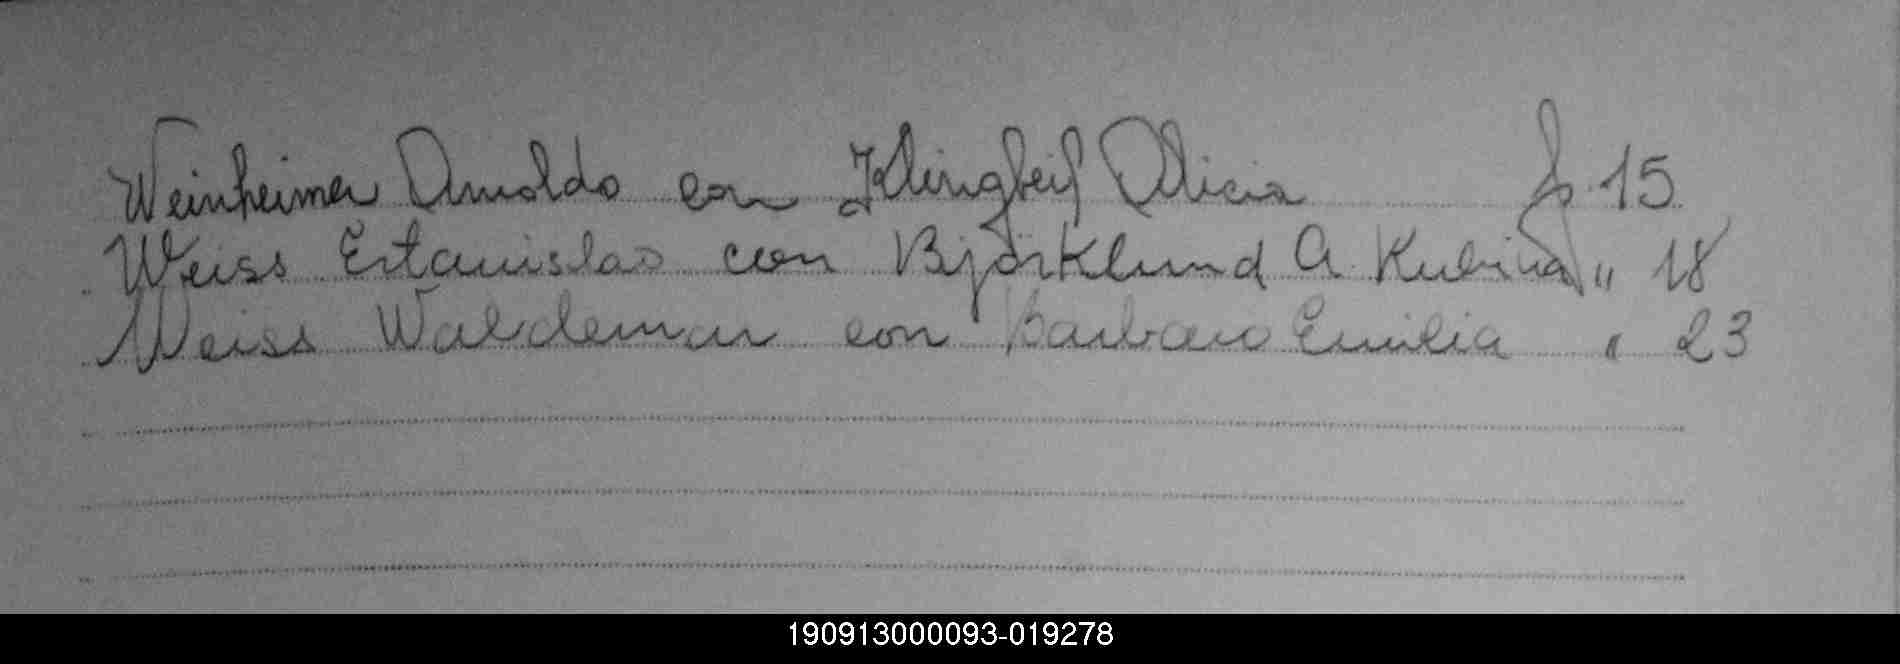 Weinheimer Arnoldo con Klingbeil Alicia f. 15
Weiss Estanislao con Björklund A. " 18
Weiss Waldemar con Barbaro Emilia " 23
190913000093-019278